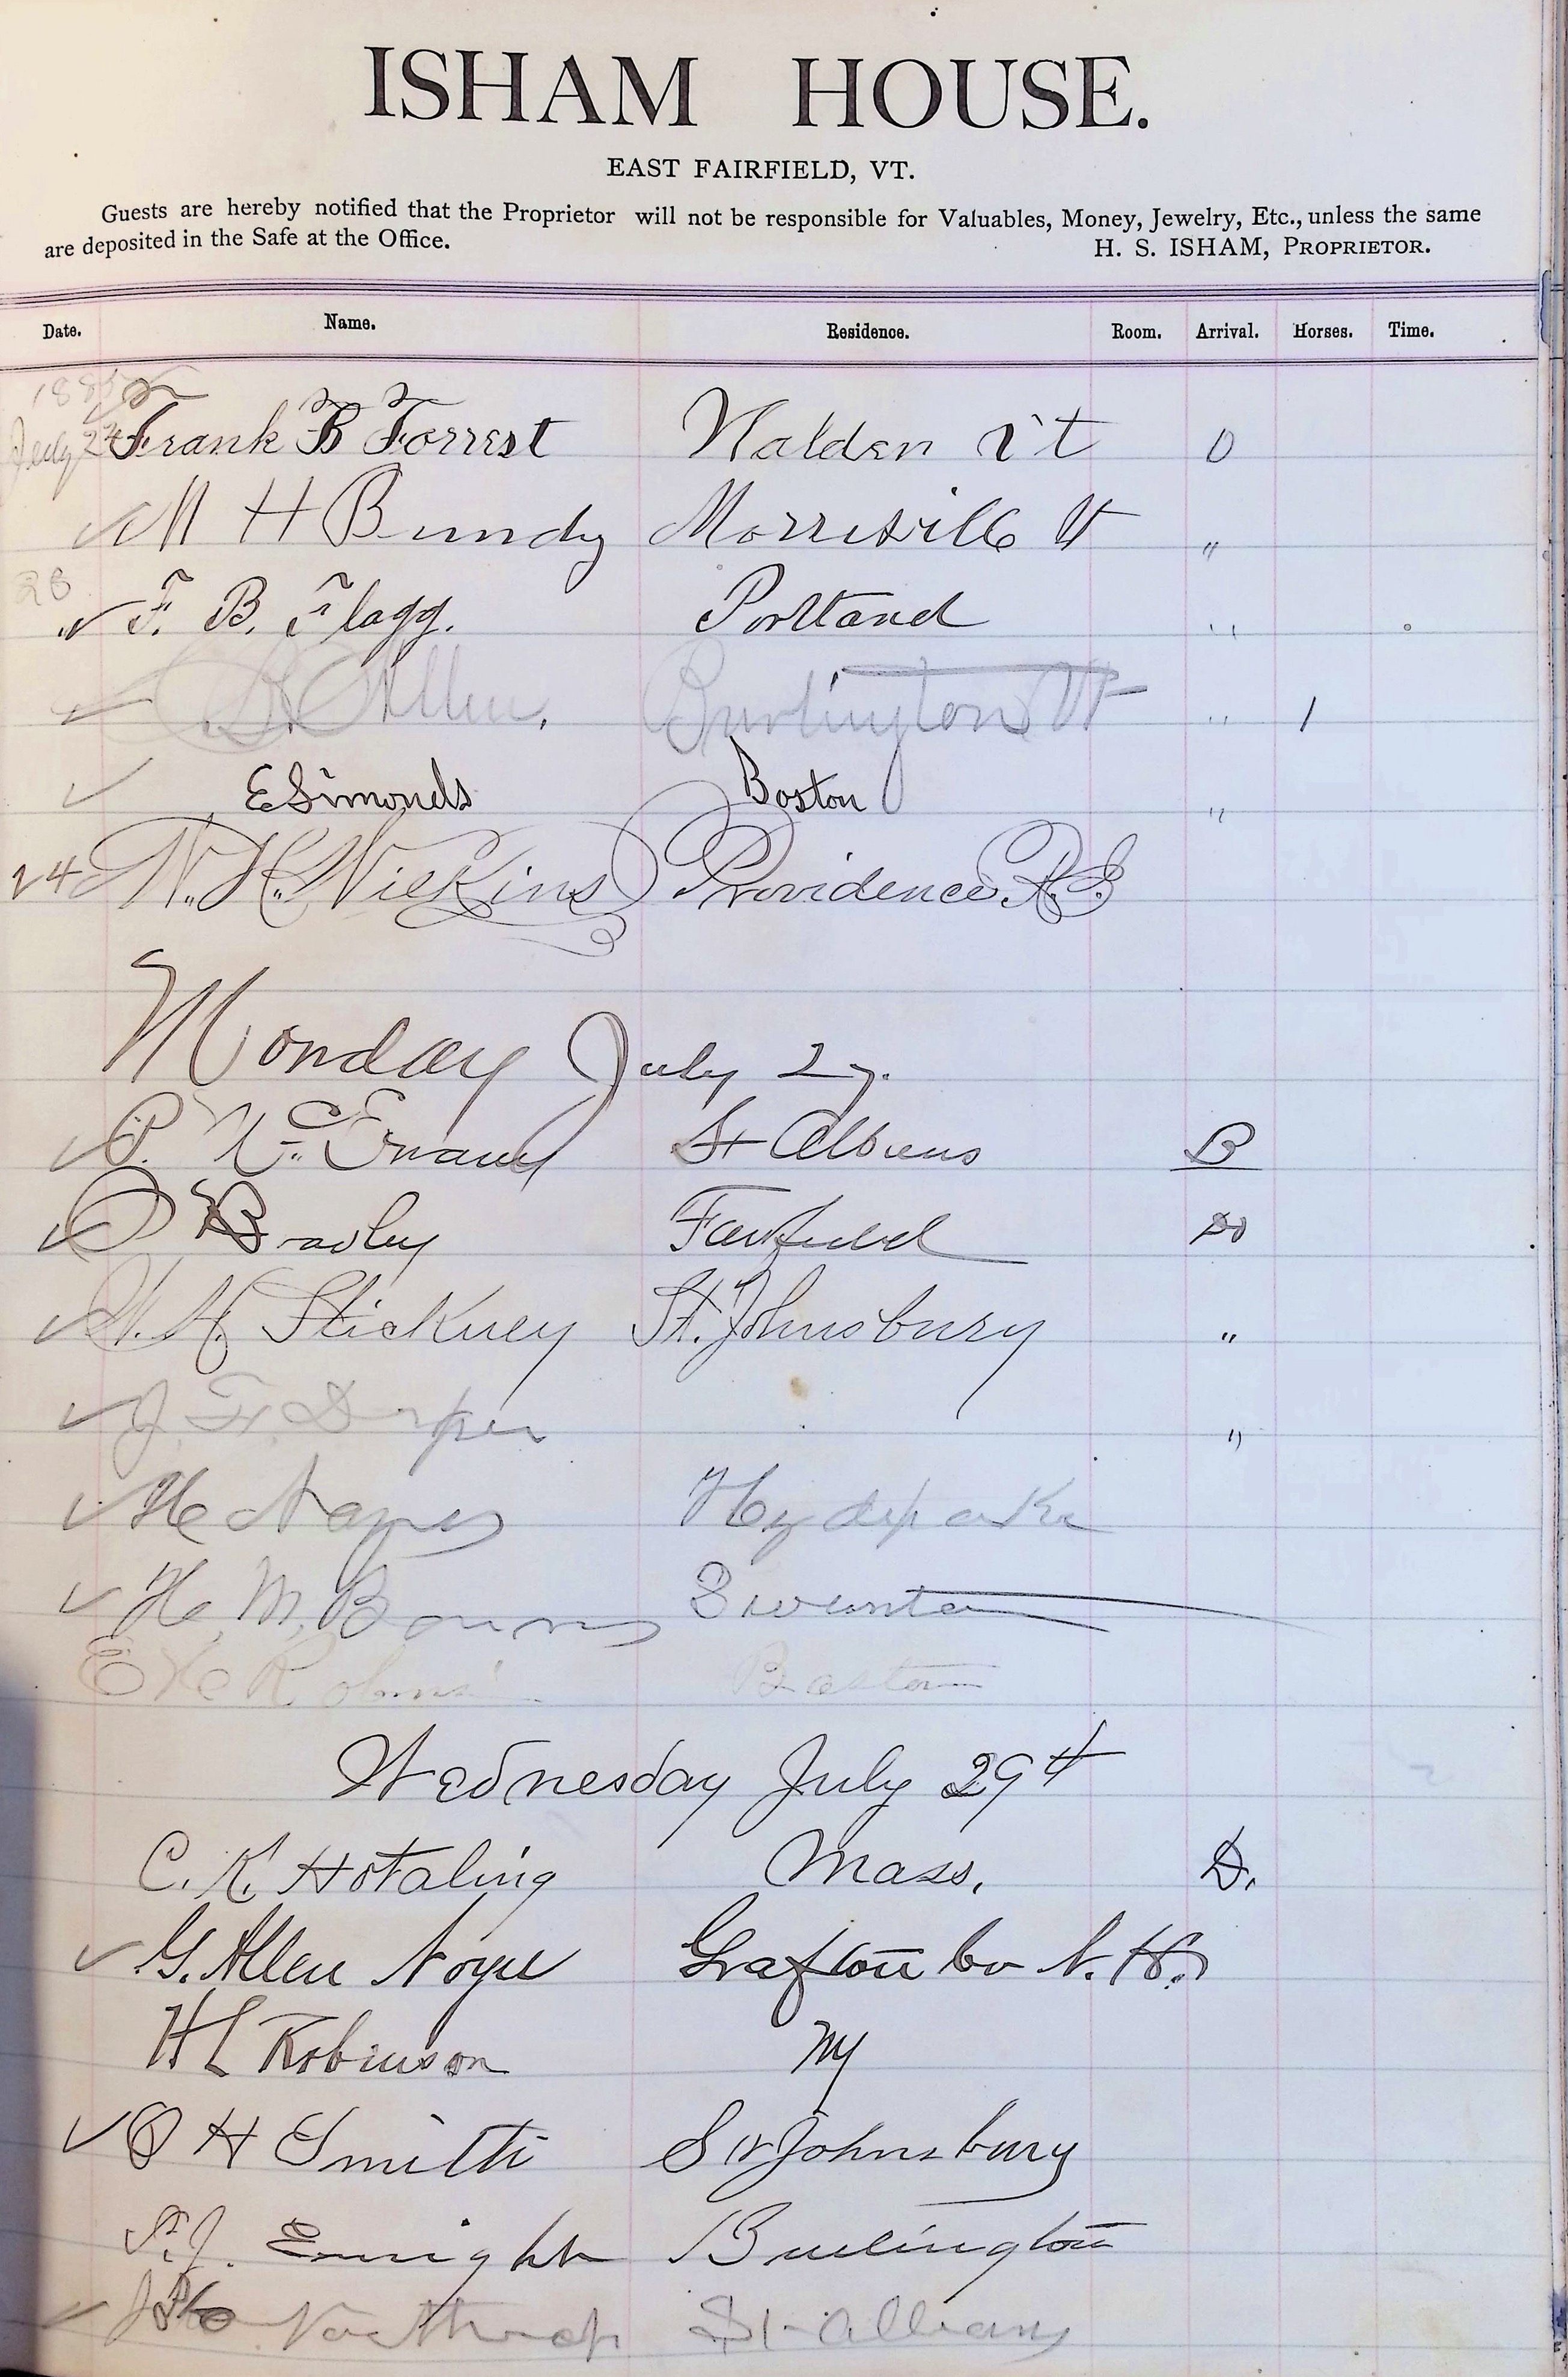 ISHAM HOUSE.
EAST FAIRFIELD, VT.
Guests are hereby notified that the Proprietor will not be responsible for Valuables, Money, Jewelry, Etc., unless the same
are deposited in the Safe at the Office. H. S. ISHAM, PROPRIETOR.
Date. Name. Residence. Room. Arrival. Horses. Time.
July 22 Frank B Forrest Walden Vt D
M H Bundy Morrisville Vt "
F. B. Flagg. Portland "
Allen. Burlington Vt " 1
E Simonds Boston "
24 W. H. Wilkins Providence R.I
Monday July 27.
P. St Albans B
Bradley Fairfield
H. Stickney St. Johnsbury "
J. F. Draper "
H Noyes Hydepark
H. M. Swanton
E H Boston
Wednesday July 29th
C. K. Hotaling Mass. D.
G. Allen Noyes Grafton Co N. H.
H L Robinson NY
O H Smith St Johnsbury
Enright Burlington
Northrop St Albans